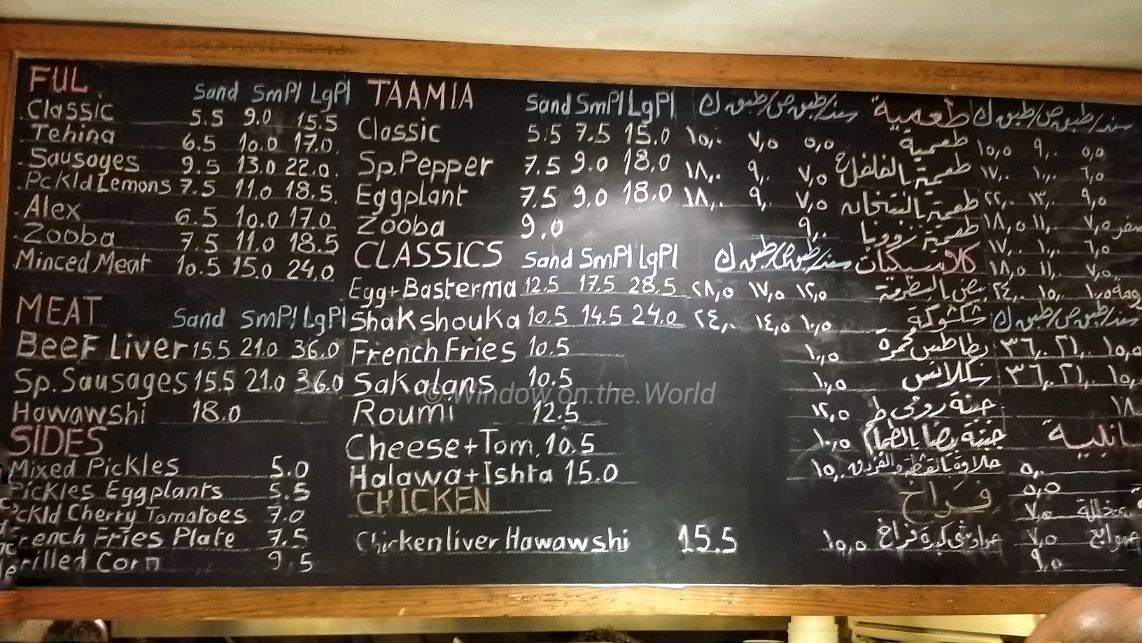 FUL Sand SmPl LgPl
Classic 5.5 9.0 15.5
Tehina 6.5 10.0 17.0
Sausages 9.5 13.0 22.0
PcKld Lemons 7.5 11.0 18.5
Alex 6.5 10.0 17.0
Zooba 7.5 11.0 18.5
Minced Meat 10.5 15.0 24.0
MEAT Sand SmPl LgPl
Beef Liver 15.5 21.0 36.0
Sp. Sausages 15.5 21.0 36.0
Hawawshi 18.0
SIDES
Mixed Pickles 5.0
Pickles Eggplants 5.5
Pckld Cherry Tomatoes 7.0
French Fries Plate 7.5
Grilled Corn 9.5
TAAMIA Sand SmPl LgPl
Classic 5.5 7.5 15.0
Sp. Pepper 7.5 9.0 18.0
Eggplant 7.5 9.0 18.0
Zooba 9.0
CLASSICS Sand SmPl LgPl
Egg+Basterma 12.5 17.5 28.5
Shakshouka 10.5 14.5 24.0
French Fries 10.5
Sakalans 10.5
Roumi 12.5
Cheese+Tom. 10.5
Halawa+Ishta 15.0
CHICKEN
Chickenliver Hawawshi 15.5
طعمية سند/طبق ص/طبق ك
طعمية
طعمية بالفلفل ٧,٥ ٩,٠ ١٨,٠
طعمية بالبتنجان ٧,٥ ٩,٠ ١٨,٠
طعمية زووبا ٩,٠
كلاسيكيات سند/طبق ص/طبق ك
بيض بالبسطرمة ١٢,٥ ١٧,٥ ٢٨,٥
شكشوكة ١٠,٥ ١٤,٥ ٢٤,٠
بطاطس محمرة ١٠,٥
سكلانس ١٠,٥
جبنة رومي ١٢,٥
جبنة بيضا بالطماطم ١٠,٥
حلاوة بالقشطة ١٥,٠
فراخ
حواوشي كبدة فراخ ١٥,٥
سند/طبق ص/طبق ك
٥,٥ ٩,٠ ١٥,٥
٦,٥ ١٠,٠ ١٧,٠
٩,٥ ١٣,٠ ٢٢,٠
٧,٥ ١١,٠ ١٨,٥
٦,٥ ١٠,٠ ١٧,٠
٧,٥ ١١,٠ ١٨,٥
١٠,٥ ١٥,٠ ٢٤,٠
سند/طبق ص/طبق ك
١٥,٥ ٢١,٠ ٣٦,٠
١٥,٥ ٢١,٠ ٣٦,٠
١٨
٥,٠
٥,٥
٧,٥
© Window on the World